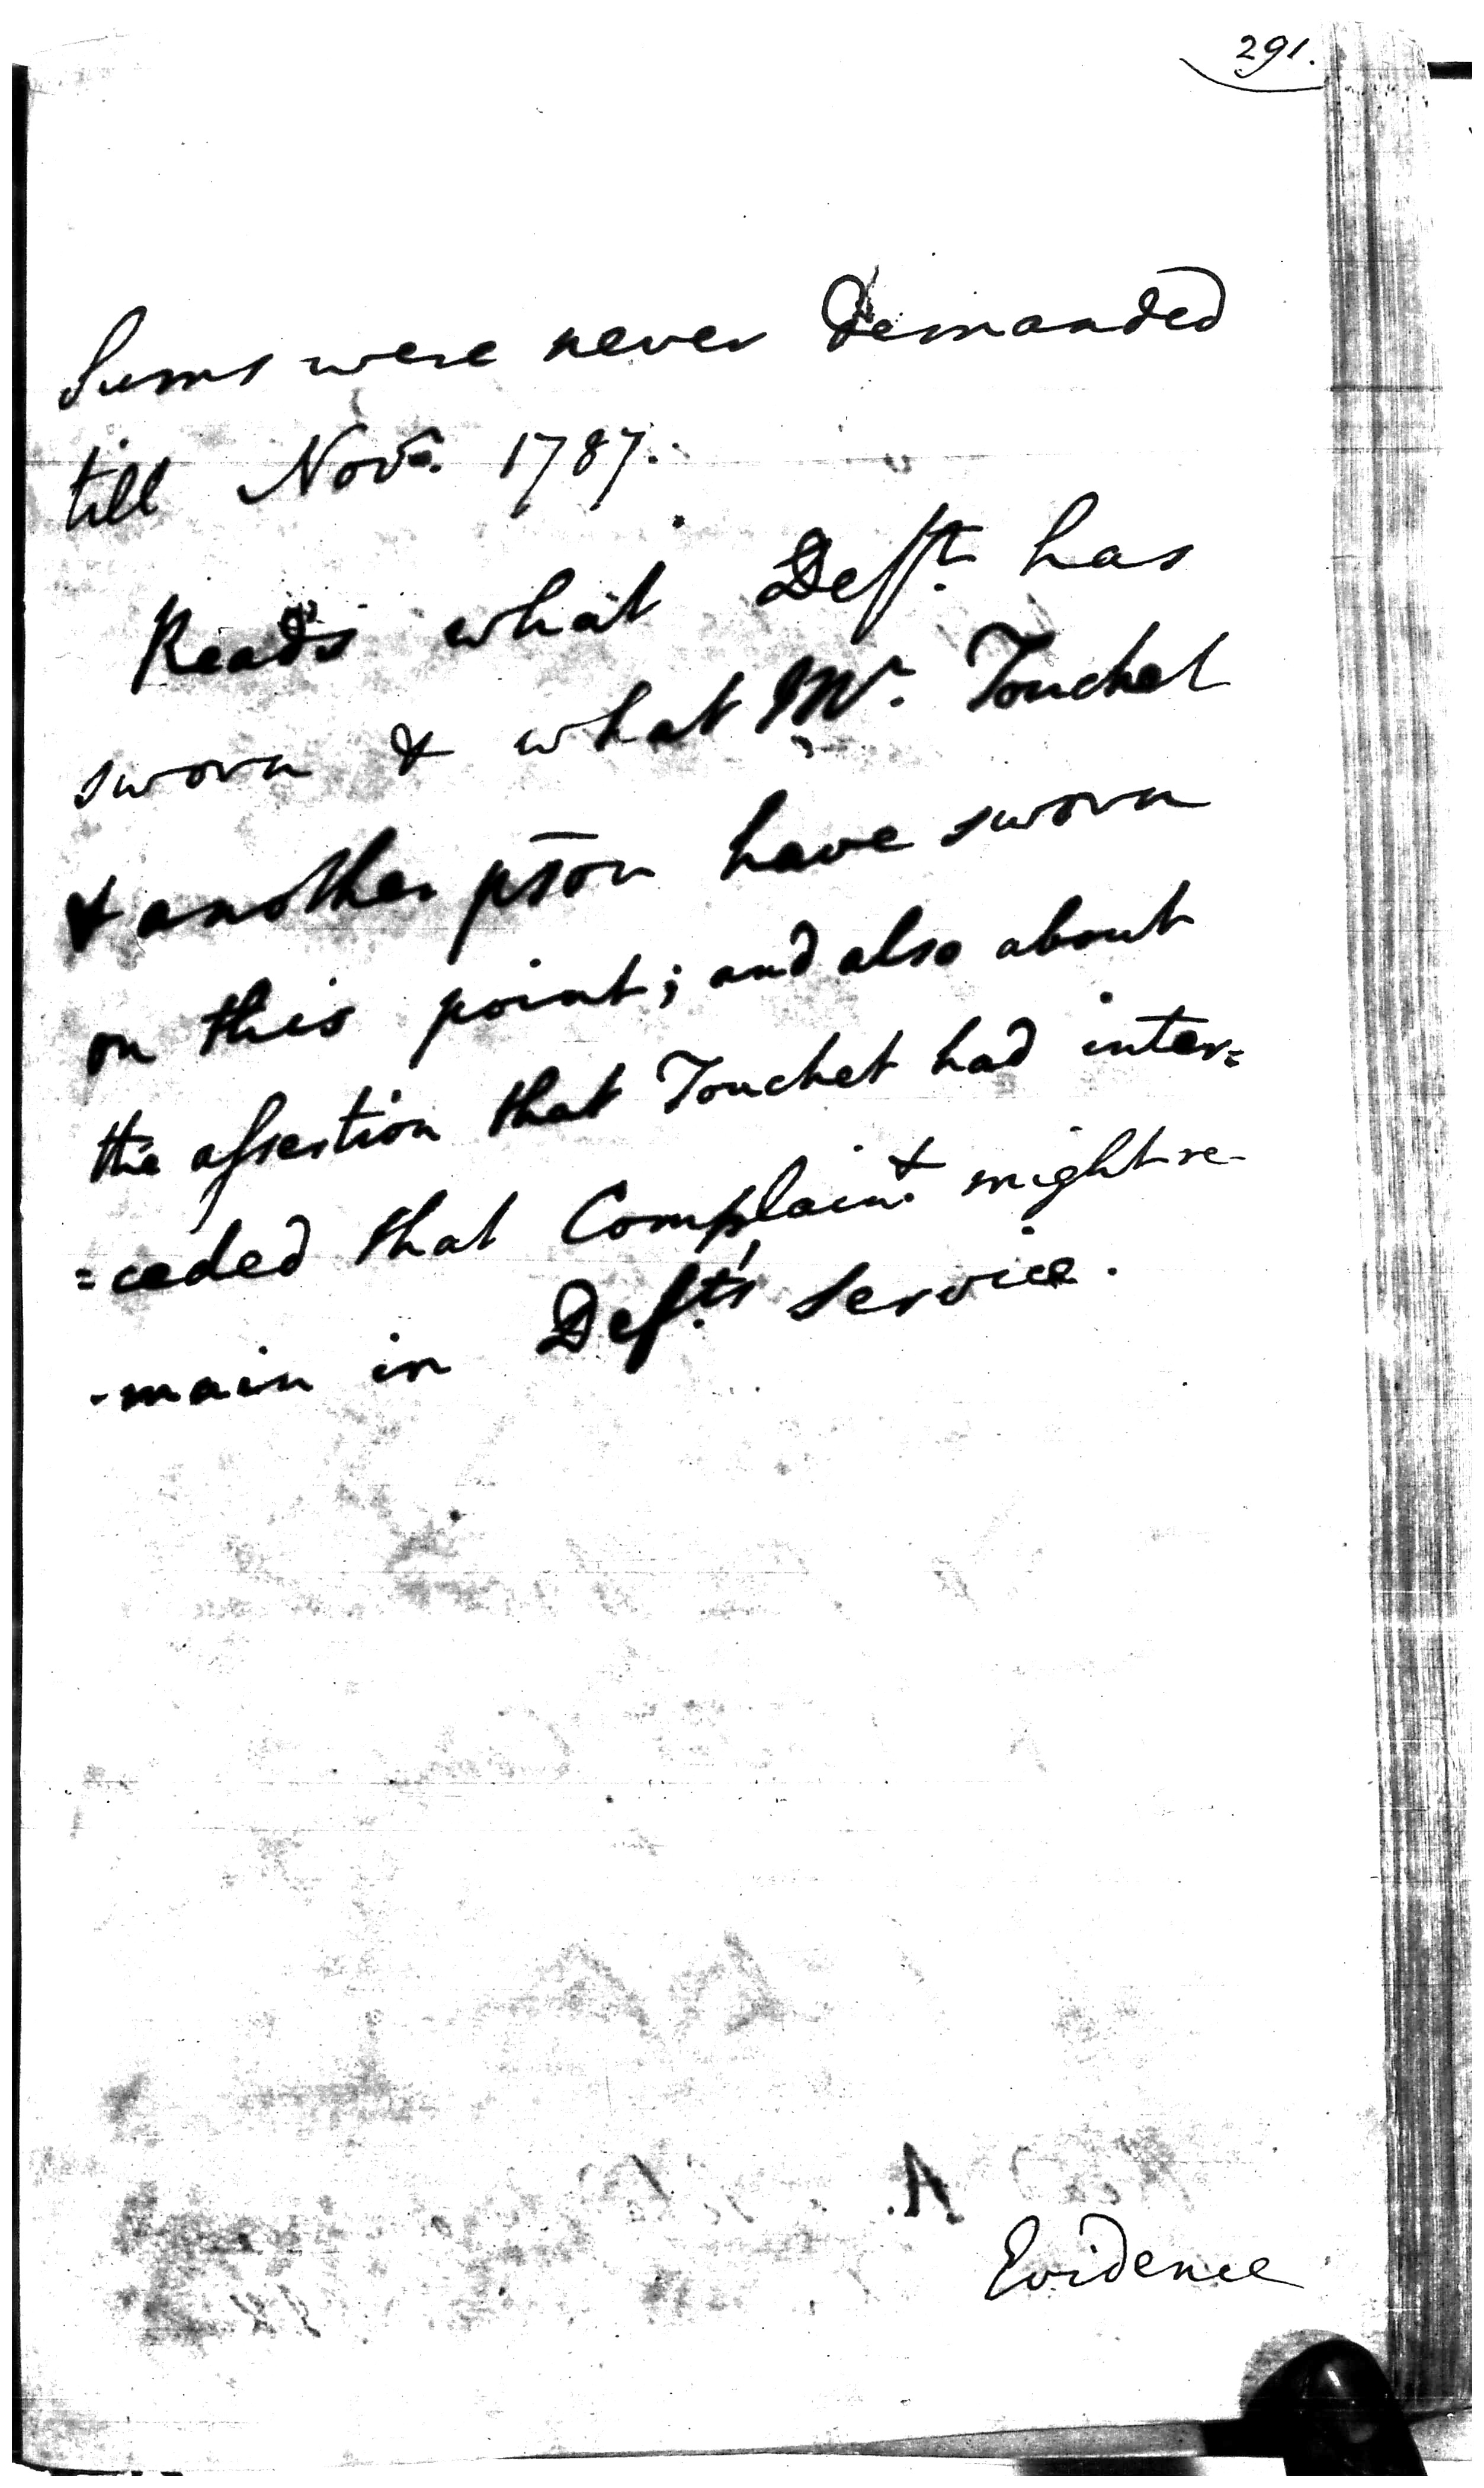 291.
Sums were never Demanded
till Novr. 1787.
Reads what Deft. has
sworn & what Mr. Touchet
& another pson have sworn
on this point; and also about
the assertion that Touchet had inter=
=ceded that Complaint. might re-
-main in Deft's service.
A
Evidence